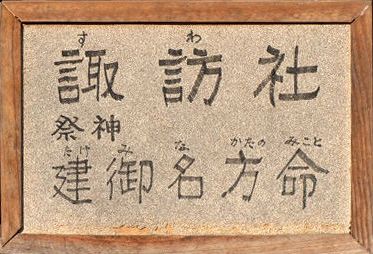 すわ
諏訪社
祭神
たけみなかたのみこと
建御名方命